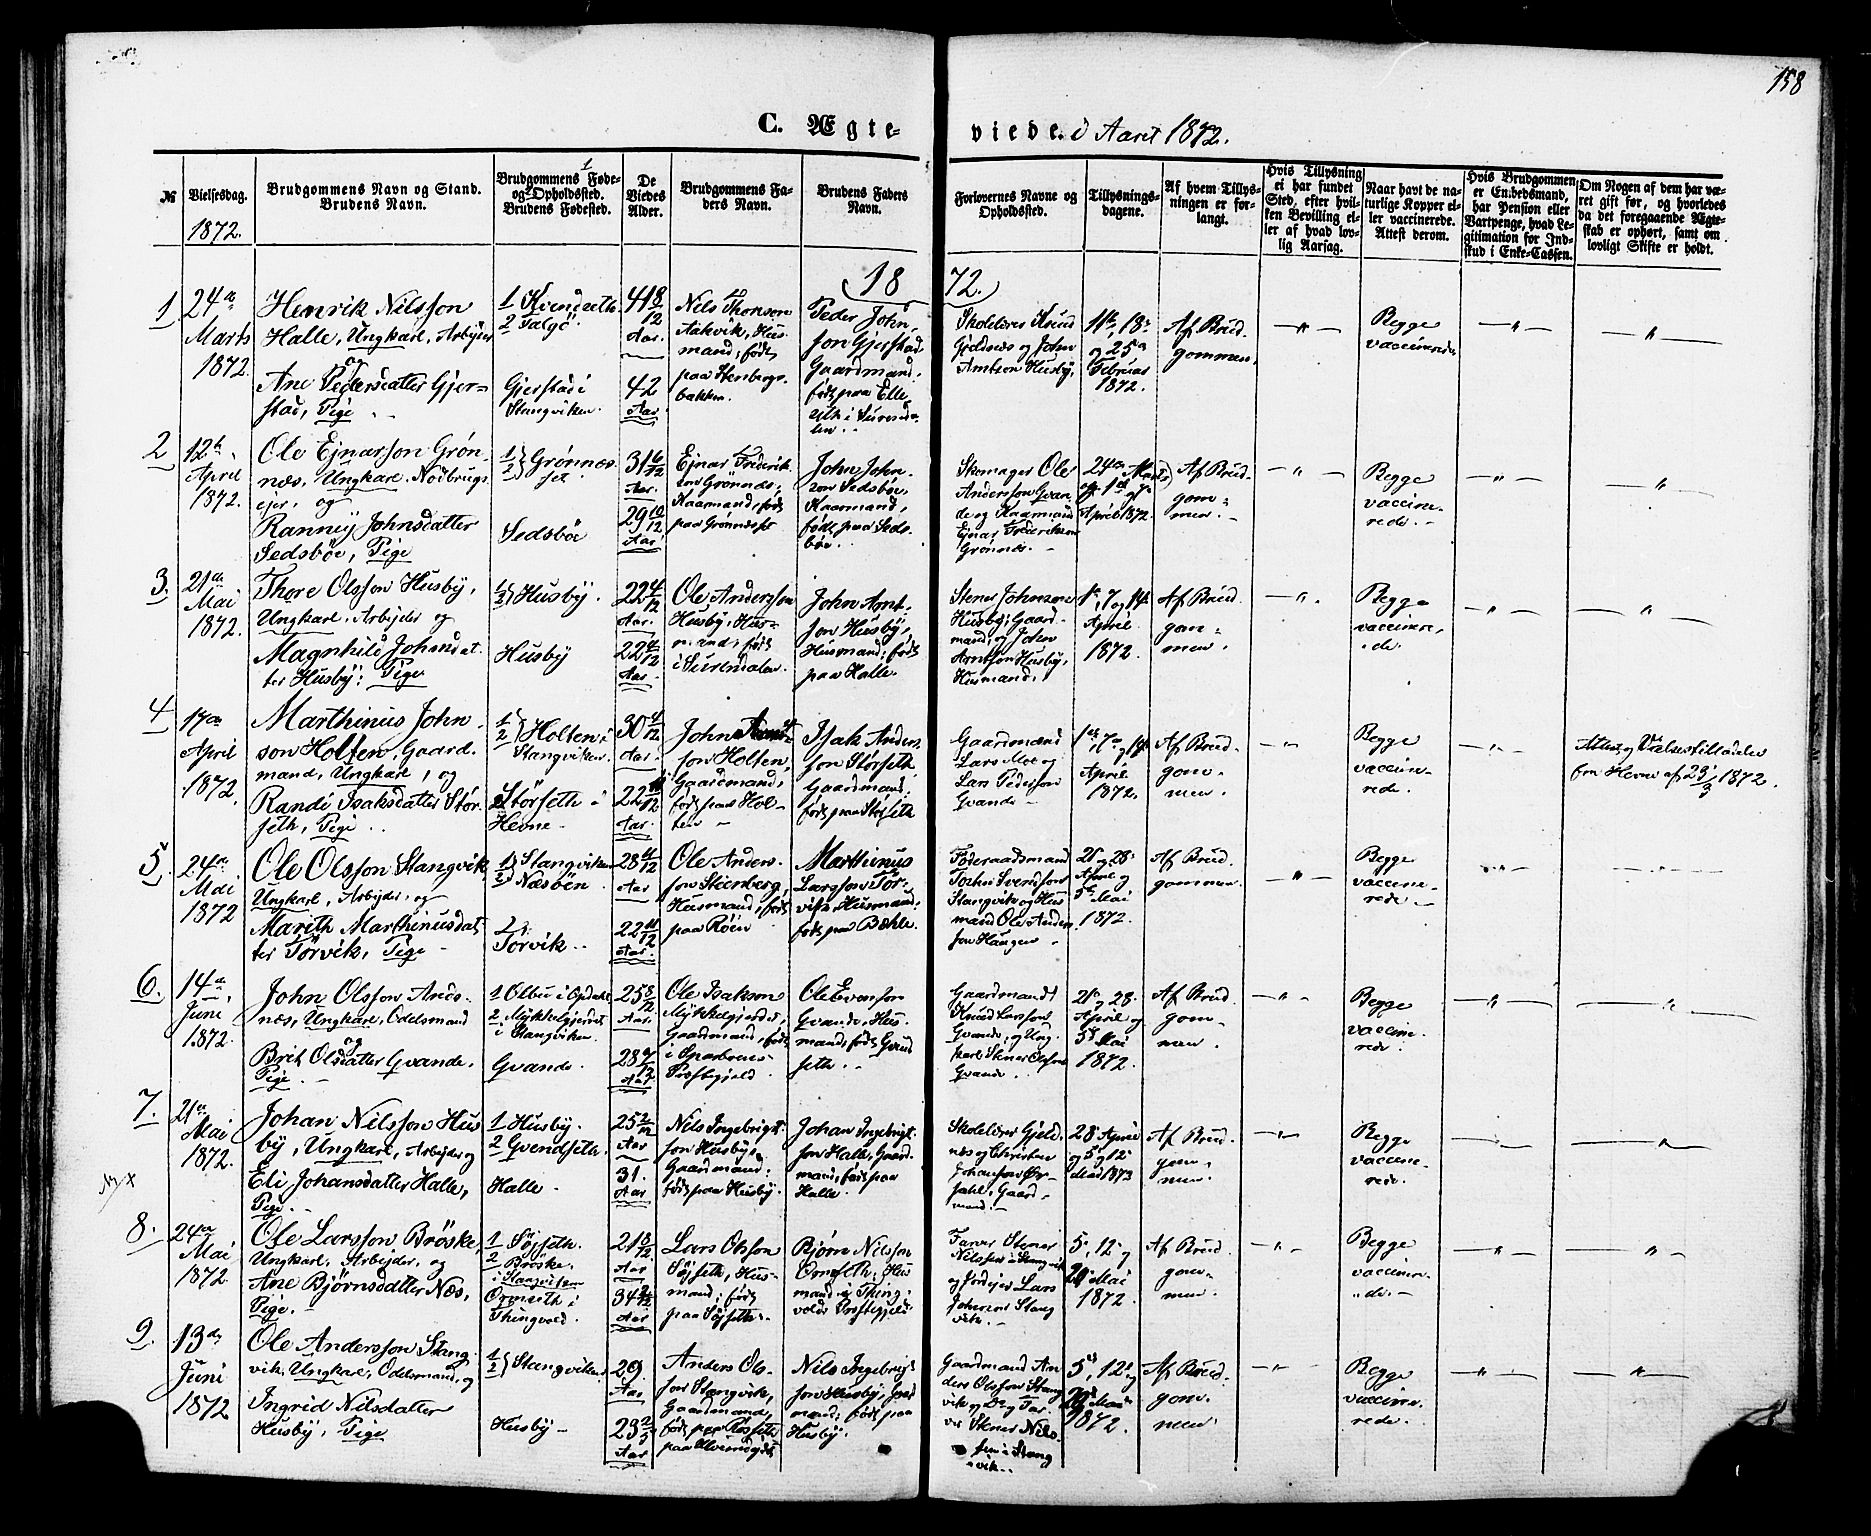 158
C. Ægte-
viede i Aaret 1872.
№
Vielsesdag.
1872.
Brudgommens Navn og Stand.
Brudens Navn.
Brudgommens Føde-
og Opholdssted.
Brudens Fødested.
De
Viedes
Alder.
Brudgommens Fa-
ders Navn.
Brudens Faders
Navn.
Forlovernes Navne og
Opholdssted.
Tillysnings-
dagene.
Af hvem Tillys-
ningen er for-
langt.
Hvis Tillysning
ei har fundet
Sted, efter hvil-
ken Bevilling el-
ler af hvad lov-
lig Aarsag.
Naar havt de na-
turlige Kopper el-
ler vaccinerede.
Attest derom.
Hvis Brudgommen
er Embedsmand,
har Pension eller
Vartpenge, hvad Le-
gitimation for Ind-
skud i Enke-Cassen.
Om Nogen af dem har væ-
ret gift før, og hvorledes
da det foregaaende Ægte-
skab er ophørt, samt om
lovligt Skifte er holdt.
1872.
1
24de
Marts
1872.
Henrik Nilsson
Halle, Ungkarl, Arbejder
og
Ane Pedersdatter Gjer-
stad, Pige
1 Kvendseth
2 Talgö.
Gjerstad i
Stangviken.
41 8/12
Aar.
42
Aar.
Nils Thomsen
Aakvik, Hus-
mand, født
paa Stenbergs-
bakken.
Peder John-
son Gjerstad
Gaardmand.
født paa Elle-
vik i Surenda-
len.
Skolelærer Knud
Gjeldnæs og John
Arntson Husby.
11te, 18de
og 25de
Februar
1872.
Af Brud-
gommen.
Begge
vaccinerede
2
12te
April
1872.
Ole Ejnarson Grön-
næs, Ungkarl, Nödbrugs-
ejer, og
Ranney Johnsdatter
Sedsböe, Pige
1/2 } Grönnæs-
set
Sedsböe
31 6/12
Aar.
29 10/12
Aar.
Ejnar Frederik-
son Grönnæs,
Kaarmand, født
paa Grönnæs
John John-
son Sedsböe,
Kaarmand,
født paa Seds-
böe.
Skomager Ole
Andersson Gvan-
de og Kaarmand
Ejnar Frederiksen
Grönnæs.
24de Marts,
1ste og 7de
April 1872.
Af Brud-
gom-
men.
Begge
vaccine-
rede.
3.
21de
Mai
1872.
Thore Olsson Husby,
Ungkarl, Arbejder og
Magnhild Johnsdat-
ter Husby, Pige
1/2 } Husby.
Husby
22 4/12
Aar.
22 4/12
Aar.
Ole Andersson
Husby, Hus-
mand, født
i Surendalen.
John Arnt-
son Husby,
Husmand, født
paa Halle.
Stener Johnsen
Husby, Gaard-
mand, og John
Arntson Husby,
Husmand.
1ste, 7 og 14de
April
1872.
Af Brud-
gom-
men.
Begge
vaccinere-
de.
4
17de
April
1872.
Marthinus John-
son Holten, Gaard-
mand, Ungkarl, og
Randi Isaksdatter Stör-
seth, Pige
1/2 } Holten i
Stangviken.
Störseth i
Hevne
30 4/12
Aar.
22 11/12
Aar.
John Arnt-
son Holten,
Gaardmand,
født paa Hol-
ten
Isak Anders-
son Störseth
Gaardmand,
født paa Störseth
Gaardmænd
Lars Moe og
Lars Pedersson
Gvande
1ste, 7de og 14de
April
1872.
Af Brud-
gom-
men.
Begge
vaccine-
rede.
Attest og Vielsestilladelse
fra Hevne af 23/3 1872.
5.
24de
Mai
1872
Ole Olsson Stangvik,
Ungkarl, Arbejder, og
Marith Marthinusdat-
ter Törvik, Pige
1 } Stangviken
2 } Næsbön
Torvik
28 4/12
Aar
22 11/12
Aar.
Ole Anders-
son Stenberg,
Husmand, født
paa Röen
Marthinus
Larsson Tör-
vik, Husmand;
født paa Bøhle.
Föderaadsmand
Svendson
Stangvik og Hus-
mand Ole Anders-
son Haugen
21 og 28
April og
5te Mai
1872.
Af Brud-
gommen.
Begge
vaccine-
rede.
6.
14de
Juni
1872.
John Olsson Aads-
næs, Ungkarl, Odelsmand
og
Brit Olsdatter Gvande.
Pige.
1 Olbu i Opdal
2 Mykkelgjerdet
i Stangviken.
Gvande.
25 8/12
Aar.
28 9/12
Aar.
Ole Isakson
Mykkelgjerdet,
Gaardmand, født
i Sparboens
Præstegjeld
Ole Evensson
Gvande, Hus-
mand, født Gvand-
seth.
Gaardmand
Knud Larsson
Gvande, og Ung-
karl Stener Olsson
Gvande.
21de og 28.
April og
5te Mai
1872.
Af Brud-
gom-
men.
Begge
vaccine-
rede.
7.
21de
Mai
1872.
Johan Nilsson Hus-
by, Ungkarl, Arbejder og
Eli Johansdatter Halle,
Pige.
1 Husby.
2 Gvendseth.
Halle
25 2/12
Aar
31.
Aar
Nils Ingebrigt-
son Husby,
Gaardmand,
født paa Husby.
Johan Ingebrigt-
son Halle, Gaard-
mand, født paa
Halle.
Skolelærer Gjeld-
næs og Christen
Johanson Ør-
sahl, Gaard-
mand.
28 April
og 5 og 12
Mai 1872
Af Brud-
gom-
men.
Begge
vaccine-
rede.
8.
24de
Mai
1872
Ole Larsson Bröske,
Ungkarl, Arbejder, og
Ane Bjørnsdatter Næs,
Pige.
1 Söjseth.
2 Bröske,
i Stangviken
Ormseth i
Thingvold.
21 8/12
Aar
34
Aar
Lars Olsson
Söjseth, Hus-
mand; født
paa Söjseth.
Bjørn Nilsson
Ormseth, Hus-
mand i Thing-
volds Præstegjeld
Farver Stener
Nilsson i Stangvik
og Jordejer Lars
Johnsen Stang-
vik.
5, 12 og
20 Mai
1872
Af Brud-
gom-
men.
Begge
vaccinere-
de.
9.
13de
Juni
1872
Ole Andersson Stang-
vik, Ungkarl, Odelsmand, og
Ingrid Nilsdatter
Husby, Pige
1/2 } Stangviken
Husby
29.
Aar
23
Aar
Anders Ols-
son Stangvik,
Gaardmand,
født paa Rosseth
paa Alvundejdet
Nils Ingebrigt-
son Husby, Gaard-
mand; født paa
Husby.
Gaardmand An-
ders Olsson Stang-
vik og Far-
ver Stener Nils-
sen i Stang-
vik.
5te, 12te og
20de Mai
1872.
Af Brud-
gom-
men.
Begge
vaccine-
rede.